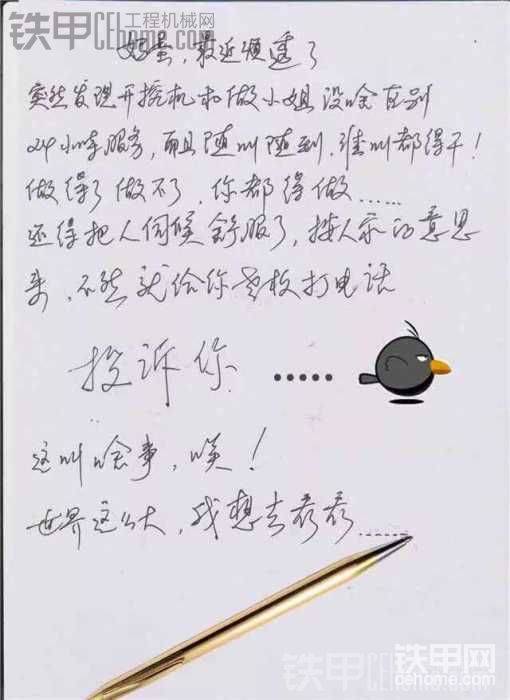 铁甲 工程机械网 cehome.com
奶蛋，最近烦透了
突然发现开挖机和做小姐没啥区别
24小时服务，而且随叫随到，谁叫都得干！
做得了做不了，你都得做……
还得把人伺候舒服了，按人家的意思
来，不然就给你老板打电话
投诉你 ……
这叫啥事，唉！
世界这么大，我想去看看……
铁甲网
cehome.com